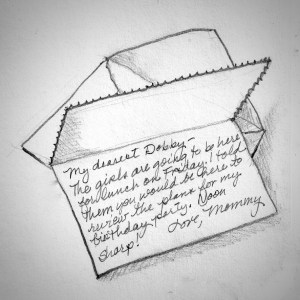 My dearest Dobby-
The girls are going to be here
for lunch on Friday. I told
them you would be here to
review the plans for my
birthday party. Noon
sharp!
Love, Mommy